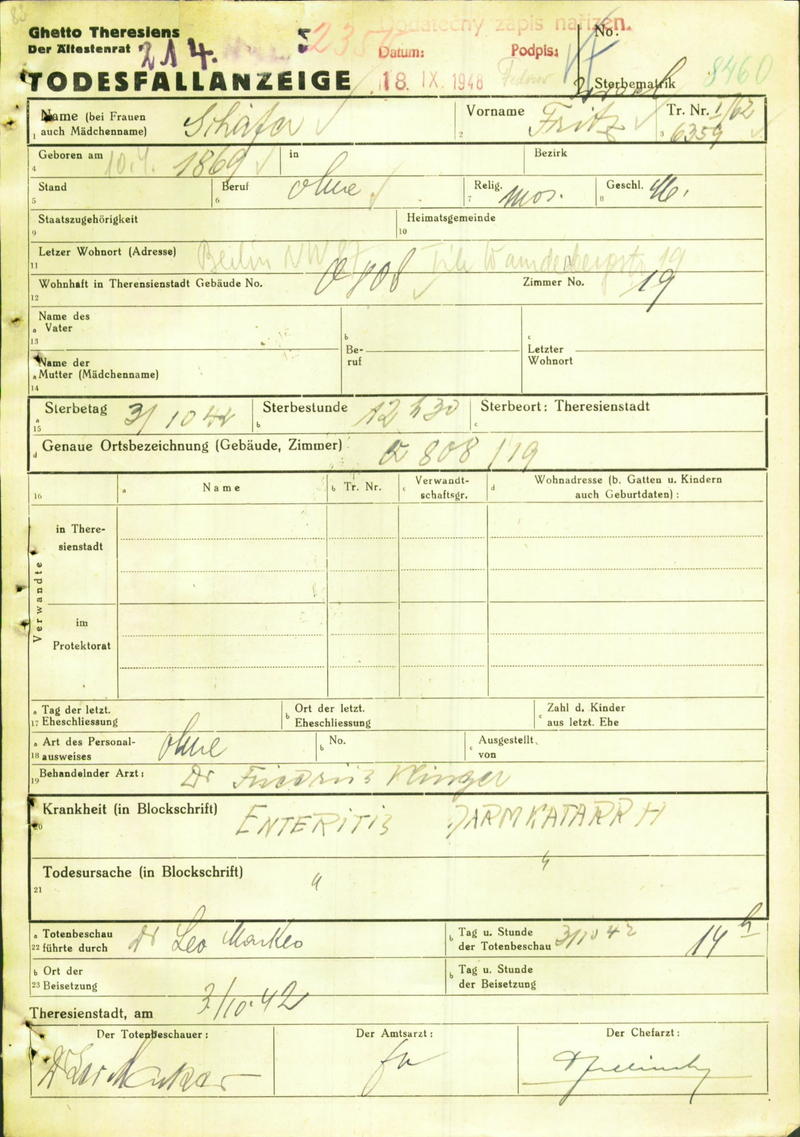 Ghetto Theresiens
Der Ältestenrat 214.
Dodatečný zápis nařízen.
Datum: Podpis:
18. IX. 1948
No:
Sterbematrik 8460
TODESFALLANZEIGE
Name (bei Frauen auch Mädchenname) Schäfer
1
Vorname Fritz
2
Tr. Nr. I/62 6359
3
Geboren am 1869 in Bezirk
4
Stand Beruf ohne Relig. mos. Geschl. M.
5 6 7 8
Staatszugehörigkeit Heimatsgemeinde
9 10
Letzer Wohnort (Adresse) Berlin NW 87 19
11
Wohnhaft in Theresienstadt Gebäude No. Q 808 Zimmer No. 19
12
Name des Vater
a 13
b Beruf
c Letzter Wohnort
Name der Mutter (Mädchenname)
a 14
Sterbetag 3/10 42 Sterbestunde 12 h 30 Sterbeort: Theresienstadt
a 15 b c
d Genaue Ortsbezeichnung (Gebäude, Zimmer) Q 808/19
16 a Name b Tr. Nr. c Verwandtschaftsgr. d Wohnadresse (b. Gatten u. Kindern auch Geburtdaten):
Verwandte
in Theresienstadt
im Protektorat
a 17 Tag der letzt. Eheschliessung b Ort der letzt. Eheschliessung c Zahl d. Kinder aus letzt. Ehe
a 18 Art des Personalausweises ohne b No. c Ausgestellt von
19 Behandelnder Arzt: Dr Friedrich Klinger
20 Krankheit (in Blockschrift) ENTERITIS DARMKATARRH
21 Todesursache (in Blockschrift) " "
a 22 Totenbeschau führte durch Dr Leo b Tag u. Stunde der Totenbeschau 3/10 42 14 h
b 23 Ort der Beisetzung b Tag u. Stunde der Beisetzung
Theresienstadt, am 3/10. 42
Der Totenbeschauer: Der Amtsarzt: Der Chefarzt: